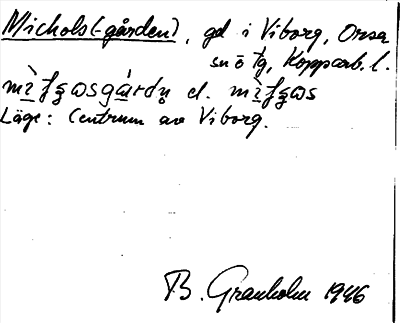 Michols(-gården), gd i Viborg, Orsa
sn o tg, Kopparb. l.
el.
Läge: Centrum av Viborg.
B. Granholm 1946